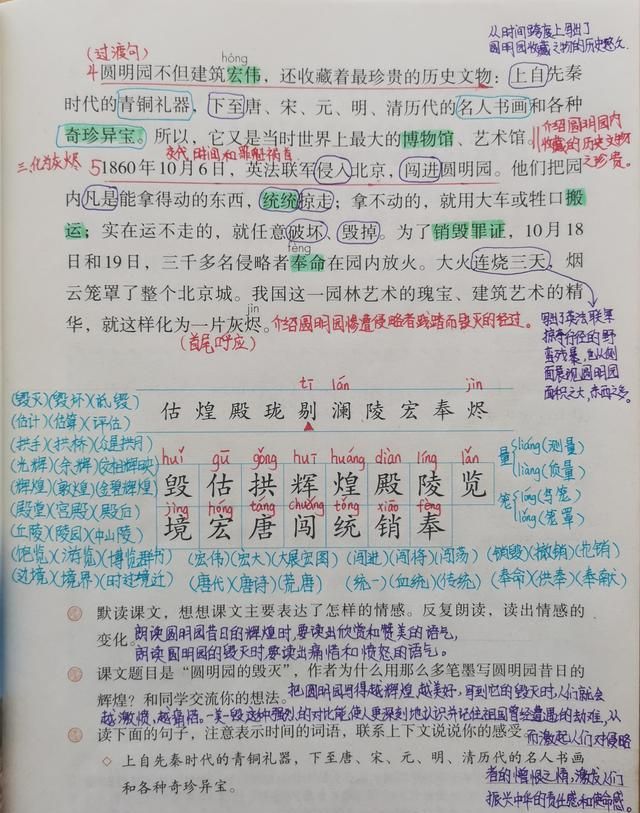 从时间跨度上写出了
圆明园收藏文物的历史悠久.
(过渡句)
hóng
4 圆明园不但建筑宏伟，还收藏着最珍贵的历史文物：上自先秦
时代的青铜礼器，下至唐、宋、元、明、清历代的名人书画和各种
奇珍异宝。所以，它又是当时世界上最大的博物馆、艺术馆。
介绍圆明园内
收藏的历史文物
之珍贵。
交代时间和罪魁祸首
三、化为灰烬
5 1860年10月6日，英法联军侵入北京，闯进圆明园。他们把园
内凡是能拿得动的东西，统统掠走；拿不动的，就用大车或牲口搬
运；实在运不走的，就任意破坏、毁掉。为了销毁罪证，10月18
fèng
日和19日，三千多名侵略者奉命在园内放火。大火连烧三天，烟
云笼罩了整个北京城。我国这一园林艺术的瑰宝、建筑艺术的精
jìn
华，就这样化为一片灰烬。介绍圆明园惨遭侵略者践踏而毁灭的经过。
(首尾呼应)
写出了英法联军
掠夺行径的野
蛮残暴，也从侧
面展现圆明园
面积之大，东西之多。
tī lán jìn
估 煌 殿 珑 剔 澜 陵 宏 奉 烬
huǐ gū gǒng huī huáng diàn líng lǎn
毁 估 拱 辉 煌 殿 陵 览
jìng hóng táng chuǎng tǒng xiāo fèng
境 宏 唐 闯 统 销 奉
(毁灭)(毁坏)(诋毁)
(估计)(估算)(评估)
(拱手)(拱桥)(众星拱月)
(光辉)(余辉)(交相辉映)
(辉煌)(敦煌)(金碧辉煌)
(殿堂)(宫殿)(殿后)
(丘陵)(陵园)(中山陵)
(饱览)(游览)(博览群书)
(边境)(境界)(时过境迁)
量 liáng(测量)
liàng(质量)
笼 lóng(鸟笼)
lǒng(笼罩)
(宏伟)(宏大)(大展宏图) (闯进)(闯将)(闯荡) (销毁)(撤销)(报销)
(唐代)(唐诗)(荒唐) (统一)(血统)(传统) (奉命)(供奉)(奉献)
默读课文，想想课文主要表达了怎样的情感。反复朗读，读出情感的
变化。朗读圆明园昔日的辉煌时，要读出欣赏和赞美的语气，
朗读圆明园的毁灭时，要读出痛惜和愤怒的语气。
课文题目是“圆明园的毁灭”，作者为什么用那么多笔墨写圆明园昔日的
辉煌？和同学交流你的想法。把圆明园写得越辉煌，越美好，写到它的毁灭时，人们就会
越激愤，越痛惜。一美一毁这种强烈的对比能使人更深刻地认识并记住祖国曾经遭遇的劫难，从
读下面的句子，注意表示时间的词语，联系上下文说说你的感受。而激起人们对侵略
◇ 上自先秦时代的青铜礼器，下至唐、宋、元、明、清历代的名人书画
者的憎恨之情，激发人们
和各种奇珍异宝。
振兴中华的责任感和使命感。